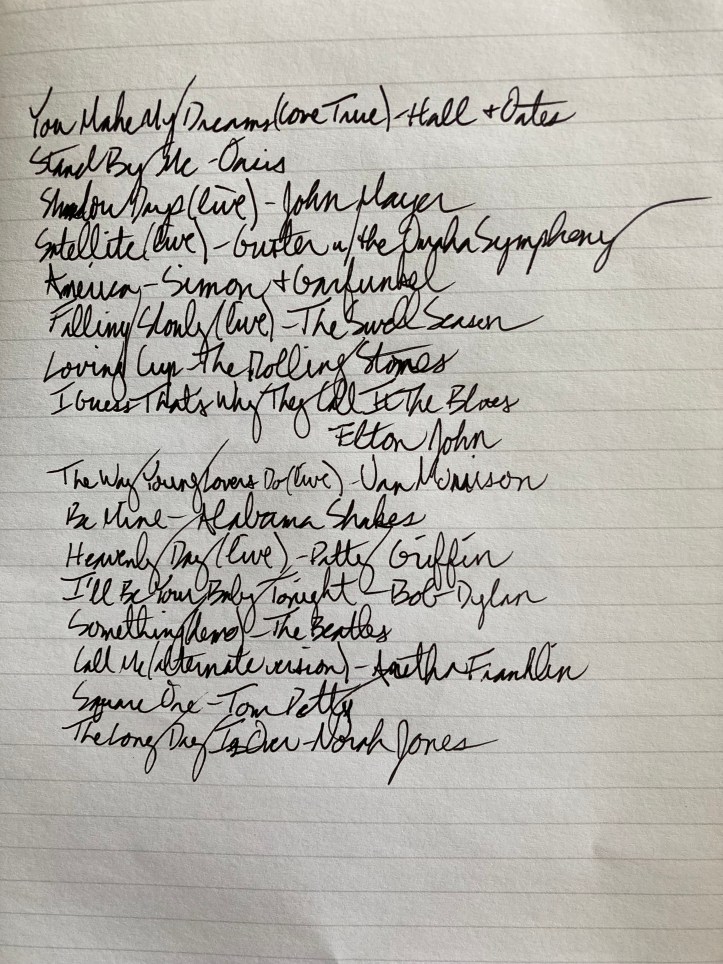 You Make My Dreams (Come True) - Hall + Oates
Stand By Me - Oasis
Shadow Days (live) - John Mayer
Satellite (live) - Guster w/ the Omaha Symphony
America - Simon + Garfunkel
Falling Slowly (live) - The Swell Season
Loving Cup - The Rolling Stones
I Guess That's Why They Call It The Blues
Elton John
The Way Young Lovers Do (live) - Van Morrison
Be Mine - Alabama Shakes
Heavenly Day (live) - Patty Griffin
I'll Be Your Baby Tonight - Bob Dylan
Something (demo) - The Beatles
Call Me (alternate version) - Aretha Franklin
Square One - Tom Petty
The Long Day Is Over - Norah Jones